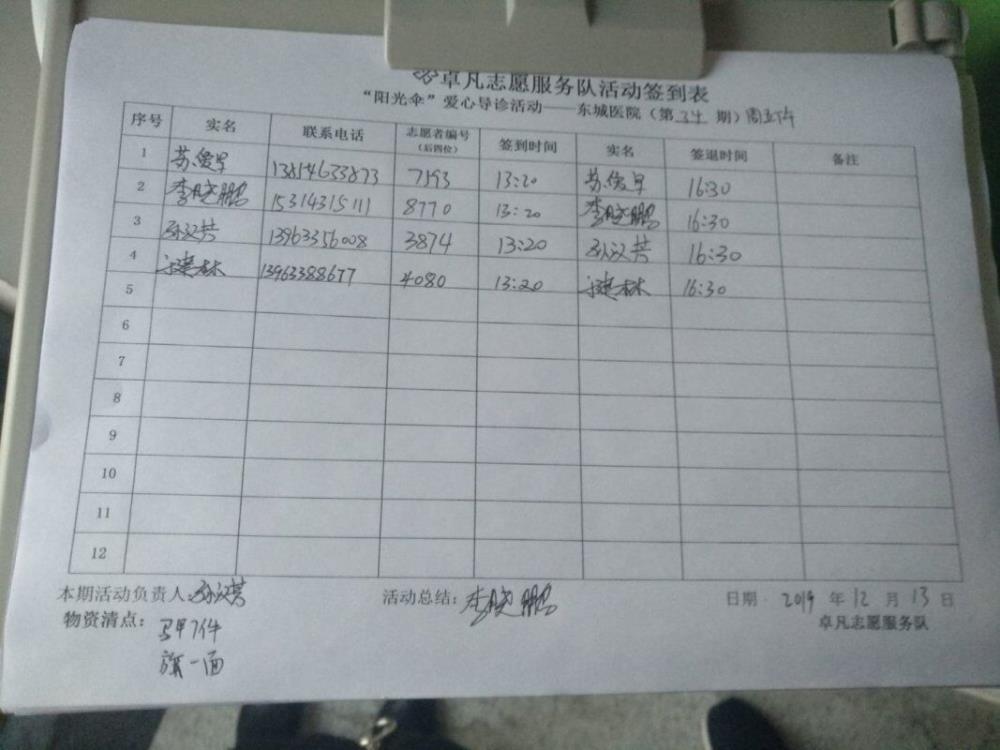 卓凡志愿服务队活动签到表
“阳光伞”爱心导诊活动——东城医院（第 期）周五下午
序号 实名 联系电话 志愿者编号（后四位） 签到时间 实名 签退时间 备注
1 苏俊早 13814633873 7193 13:20 苏俊早 16:30
2 李晓鹏 15314315111 8770 13:20 李晓鹏 16:30
3 孙汉芸 13963356008 3874 13:20 孙汉芸 16:30
4 13963388677 4080 13:20 16:30
5
6
7
8
9
10
11
12
本期活动负责人:孙汉芸 活动总结: 李晓鹏 日期 2019 年 12 月 13 日
物资清点: 马甲7件 卓凡志愿服务队
旗一面